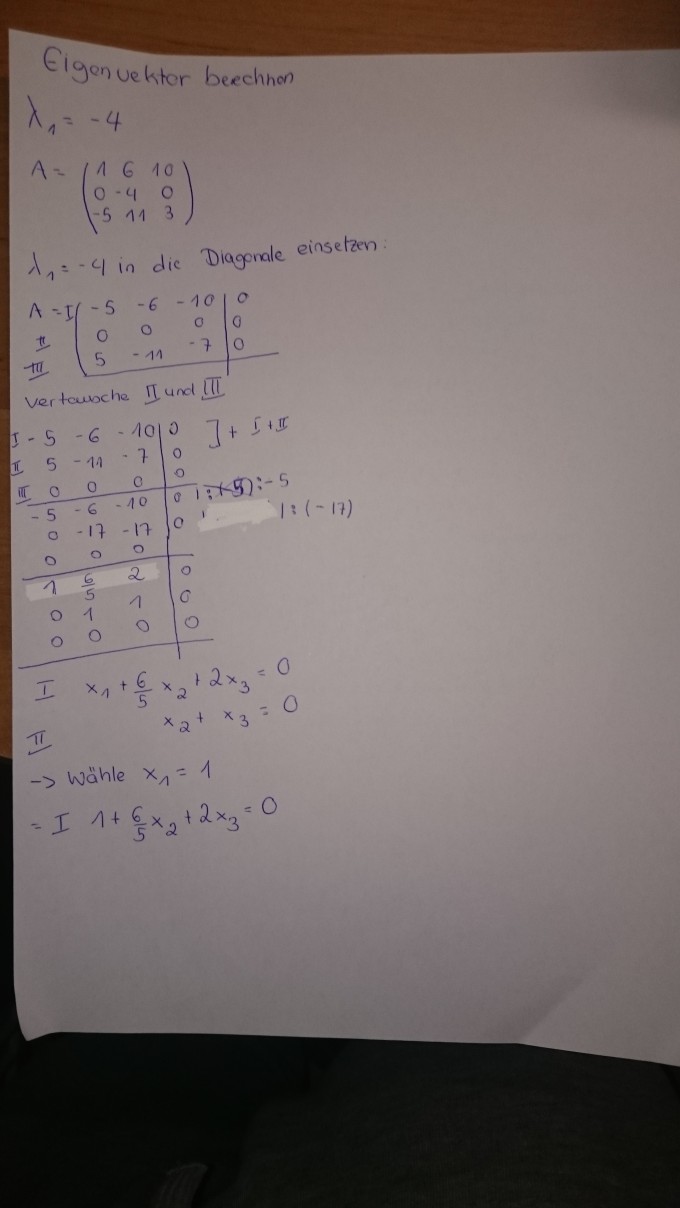 Eigenvektor beechnen
λ₁ = -4
A = ( 1 6 10
0 -4 0
-5 11 3 )
λ₁ = -4 in die Diagonale einsetzen:
A = I ( -5 -6 -10 | 0
II 0 0 0 | 0
III 5 -11 -7 | 0
Vertausche II und III
I -5 -6 -10 | 0 ] + I + II
II 5 -11 -7 | 0
III 0 0 0 | 0
-5 -6 -10 | 0 | :-5
0 -17 -17 | 0 | : (-17)
0 0 0
1 6/5 2 | 0
0 1 1 | 0
0 0 0 | 0
I x₁ + 6/5 x₂ + 2x₃ = 0
II x₂ + x₃ = 0
-> Wähle x₁ = 1
= I 1 + 6/5 x₂ + 2x₃ = 0